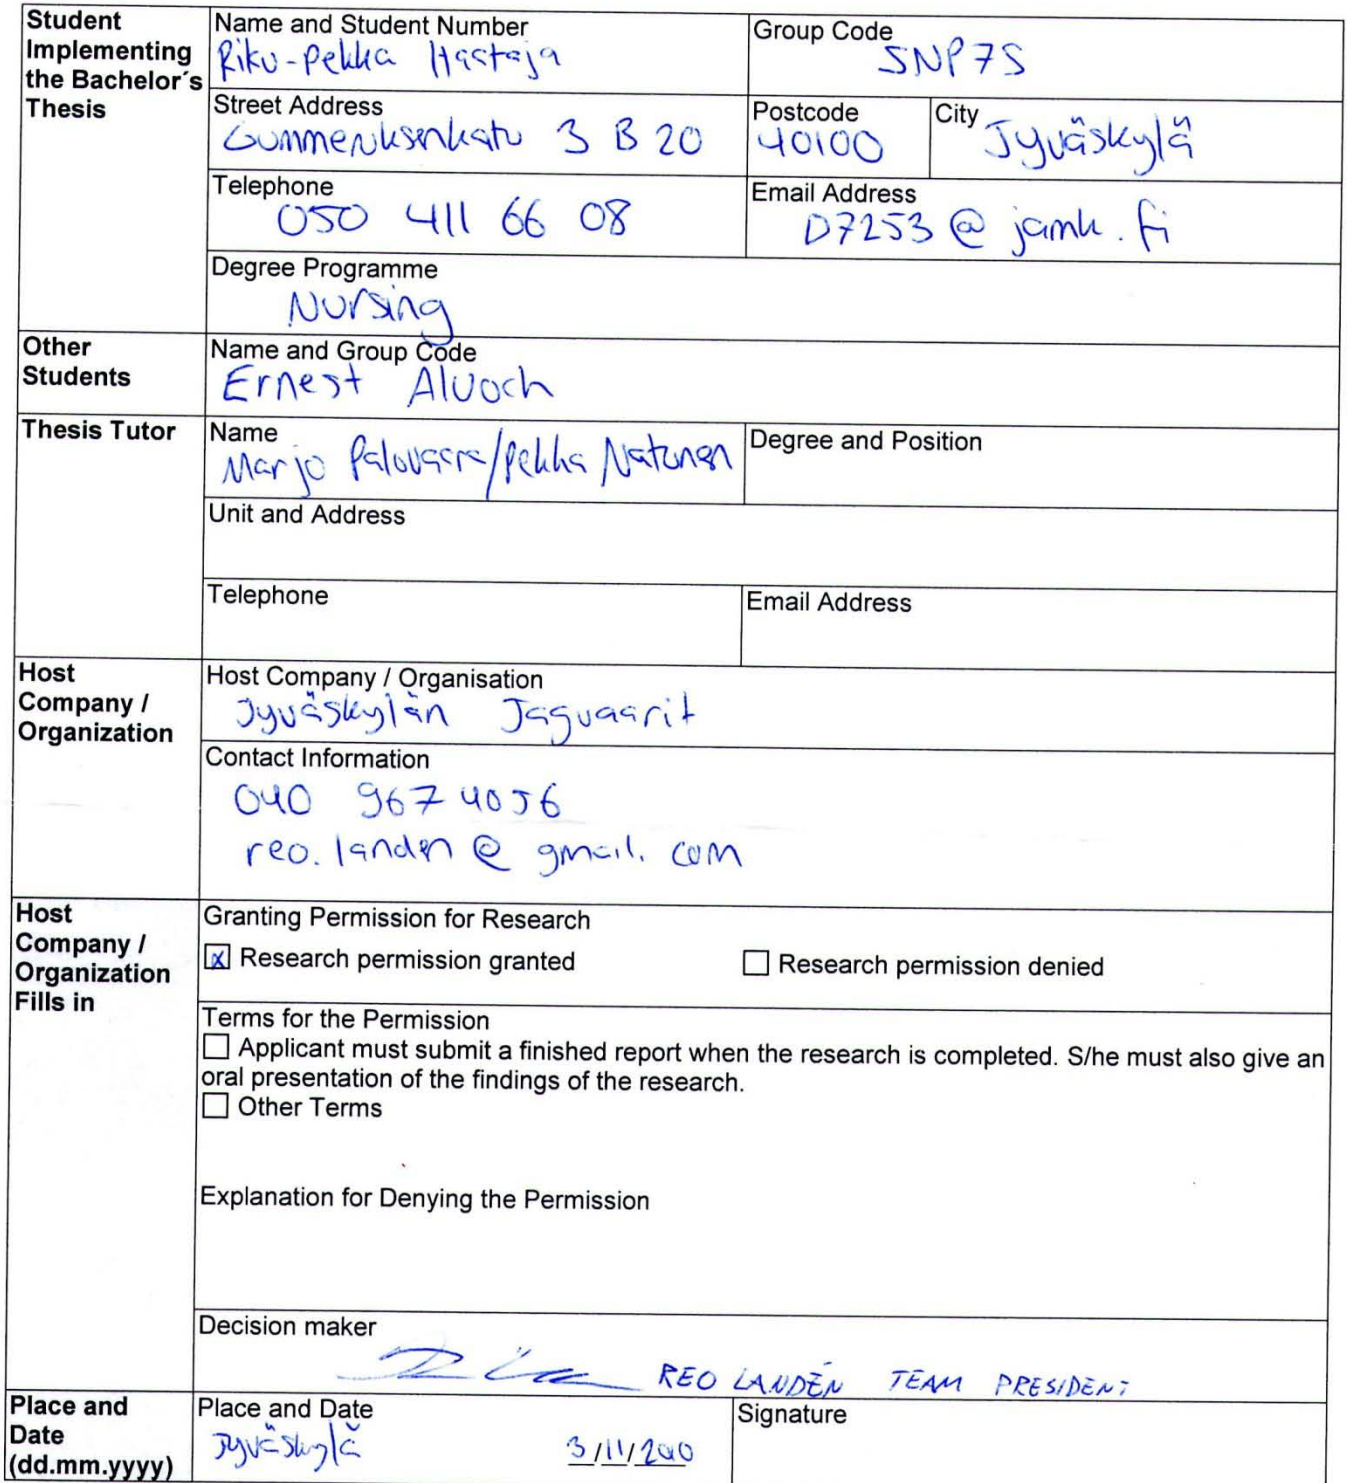 Student Implementing the Bachelor´s Thesis
Name and Student Number
Riku-Pekka Hastaja
Group Code
SNP7S
Street Address
Gummeruksenkatu 3 B 20
Postcode
40100
City
Jyväskylä
Telephone
050 411 66 08
Email Address
D7253@jamk.fi
Degree Programme
Nursing
Other Students
Name and Group Code
Ernest Aluoch
Thesis Tutor
Name
Marjo Palovaara/Pekka Natunen
Degree and Position
Unit and Address
Telephone
Email Address
Host Company / Organization
Host Company / Organisation
Jyväskylän Jaguaarit
Contact Information
040 967 4056
reo.landen@gmail.com
Host Company / Organization Fills in
Granting Permission for Research
☒ Research permission granted
☐ Research permission denied
Terms for the Permission
☐ Applicant must submit a finished report when the research is completed. S/he must also give an
oral presentation of the findings of the research.
☐ Other Terms
Explanation for Denying the Permission
Decision maker
REO LANDÉN TEAM PRESIDENT
Place and Date (dd.mm.yyyy)
Place and Date
Jyväskylä 3/11/2010
Signature